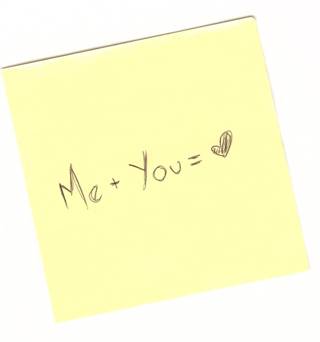 Me + You = ♥